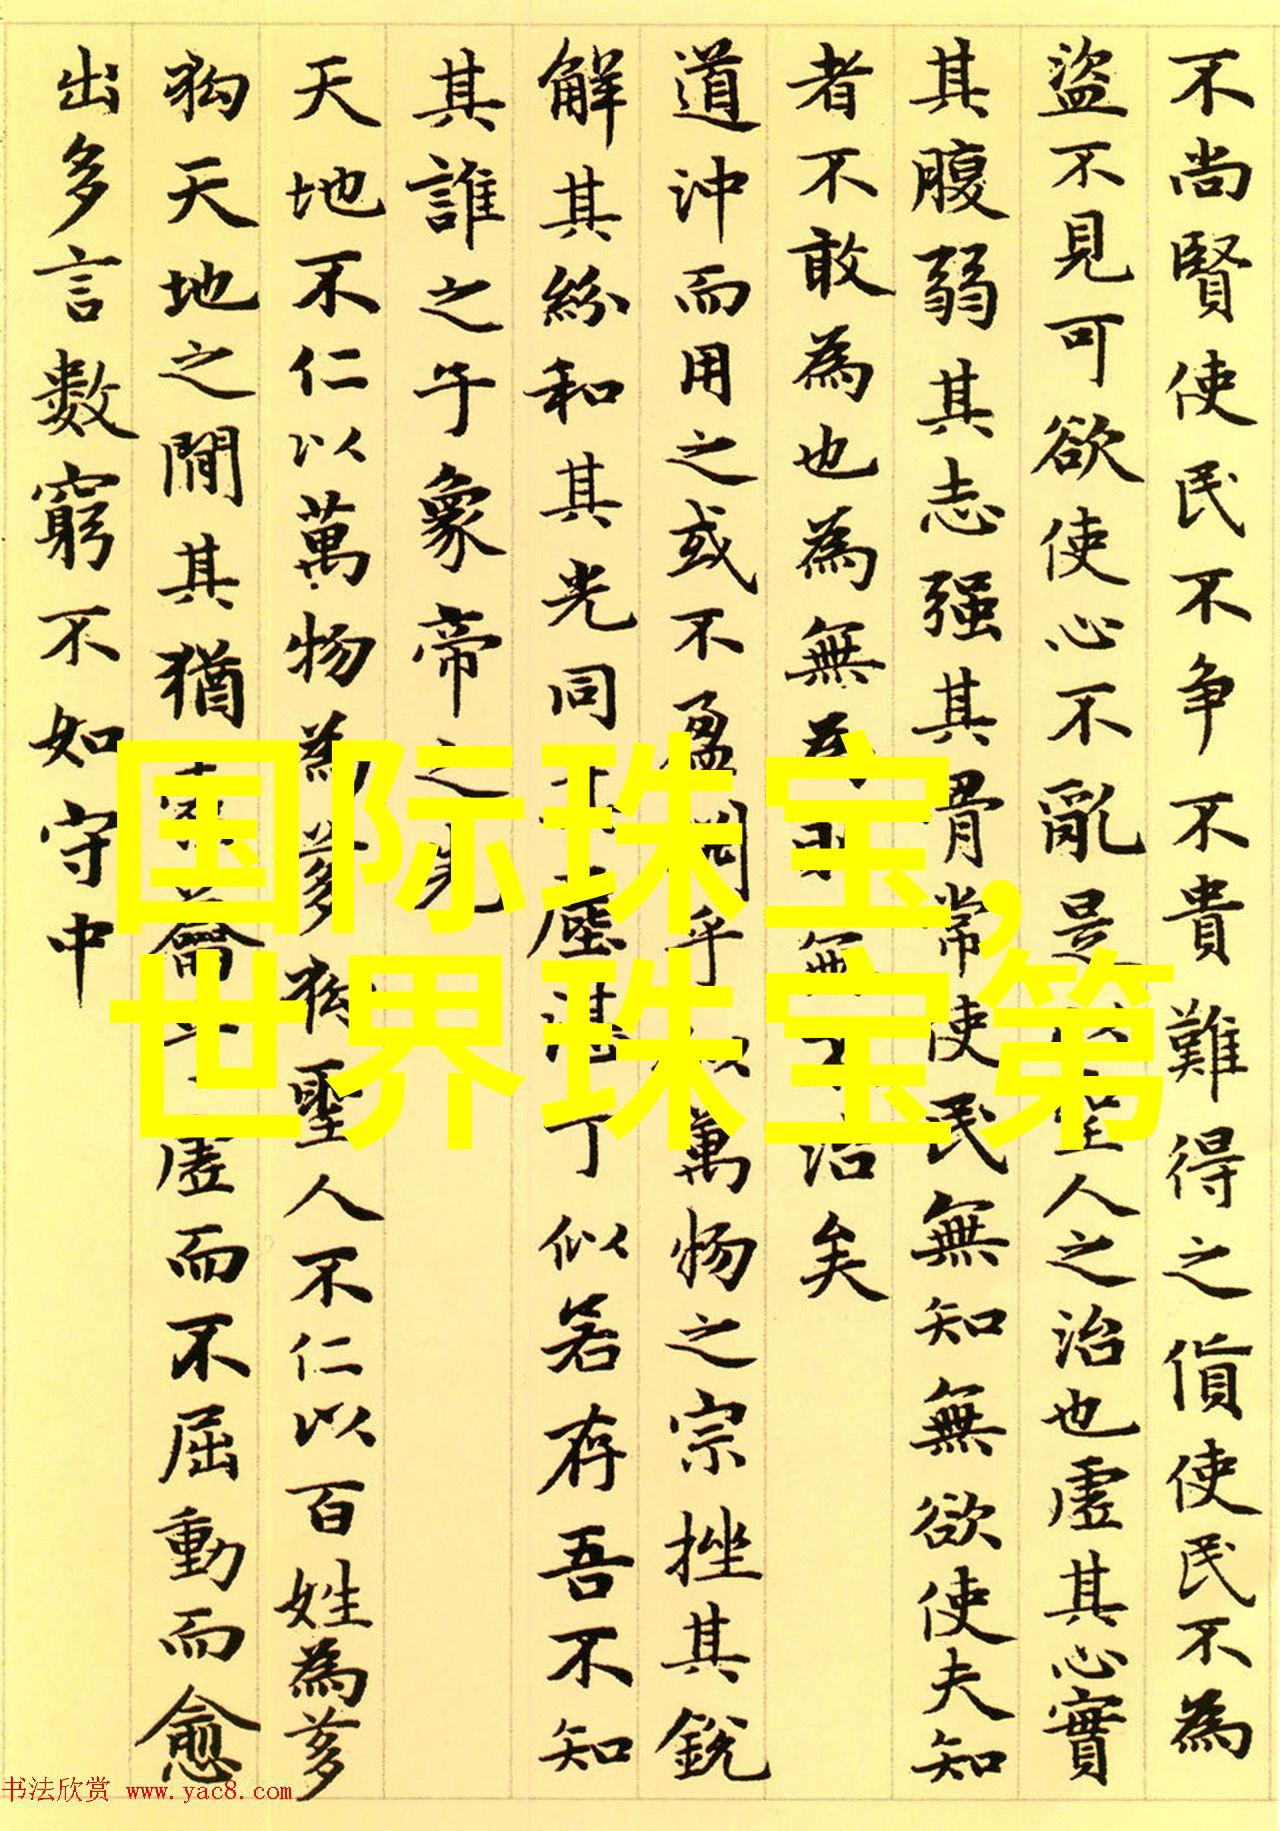 不尚賢使民不争不貴難得之貨使民不為
盜不見可欲使心不亂是以聖人之治也虛其心實
其腹弱其志强其骨常使民無知無欲使夫知
者不敢為也為無為則無不治矣
道沖而用之或不盈淵乎似萬物之宗挫其銳
解其紛和其光同其塵湛丁似若存吾不知
其誰之子象帝之先
天地不仁以萬物為芻狗聖人不仁以百姓為芻
狗天地之間其猶橐籥乎虛而不屈動而愈
出多言數窮不如守中
国际珠宝,
世界珠宝第
书法欣赏 www.yac8.com